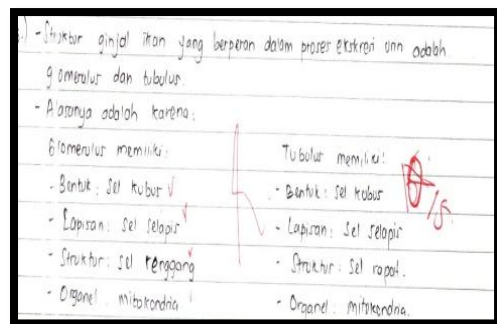 - Struktur ginjal ikan yang berperan dalam proses ekskresi urin adalah
glomerulus dan tubulus.
- Alasanya adalah karena:
Glomerulus memiliki:
- Bentuk: sel kubus
- Lapisan: sel selapis
- Struktur: sel renggang
- Organel: mitokondria
Tubulus memiliki:
- Bentuk: sel kubus
- Lapisan: sel selapis
- Struktur: sel rapat.
- Organel: mitokondria.